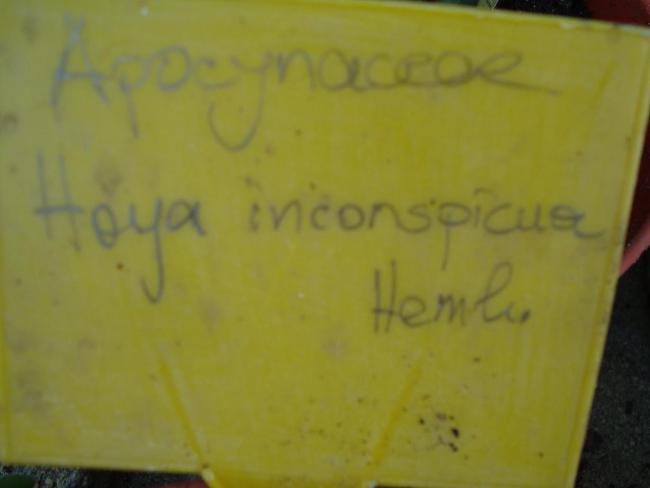 Apocynaceae
Hoya inconspicua
Hemsl.